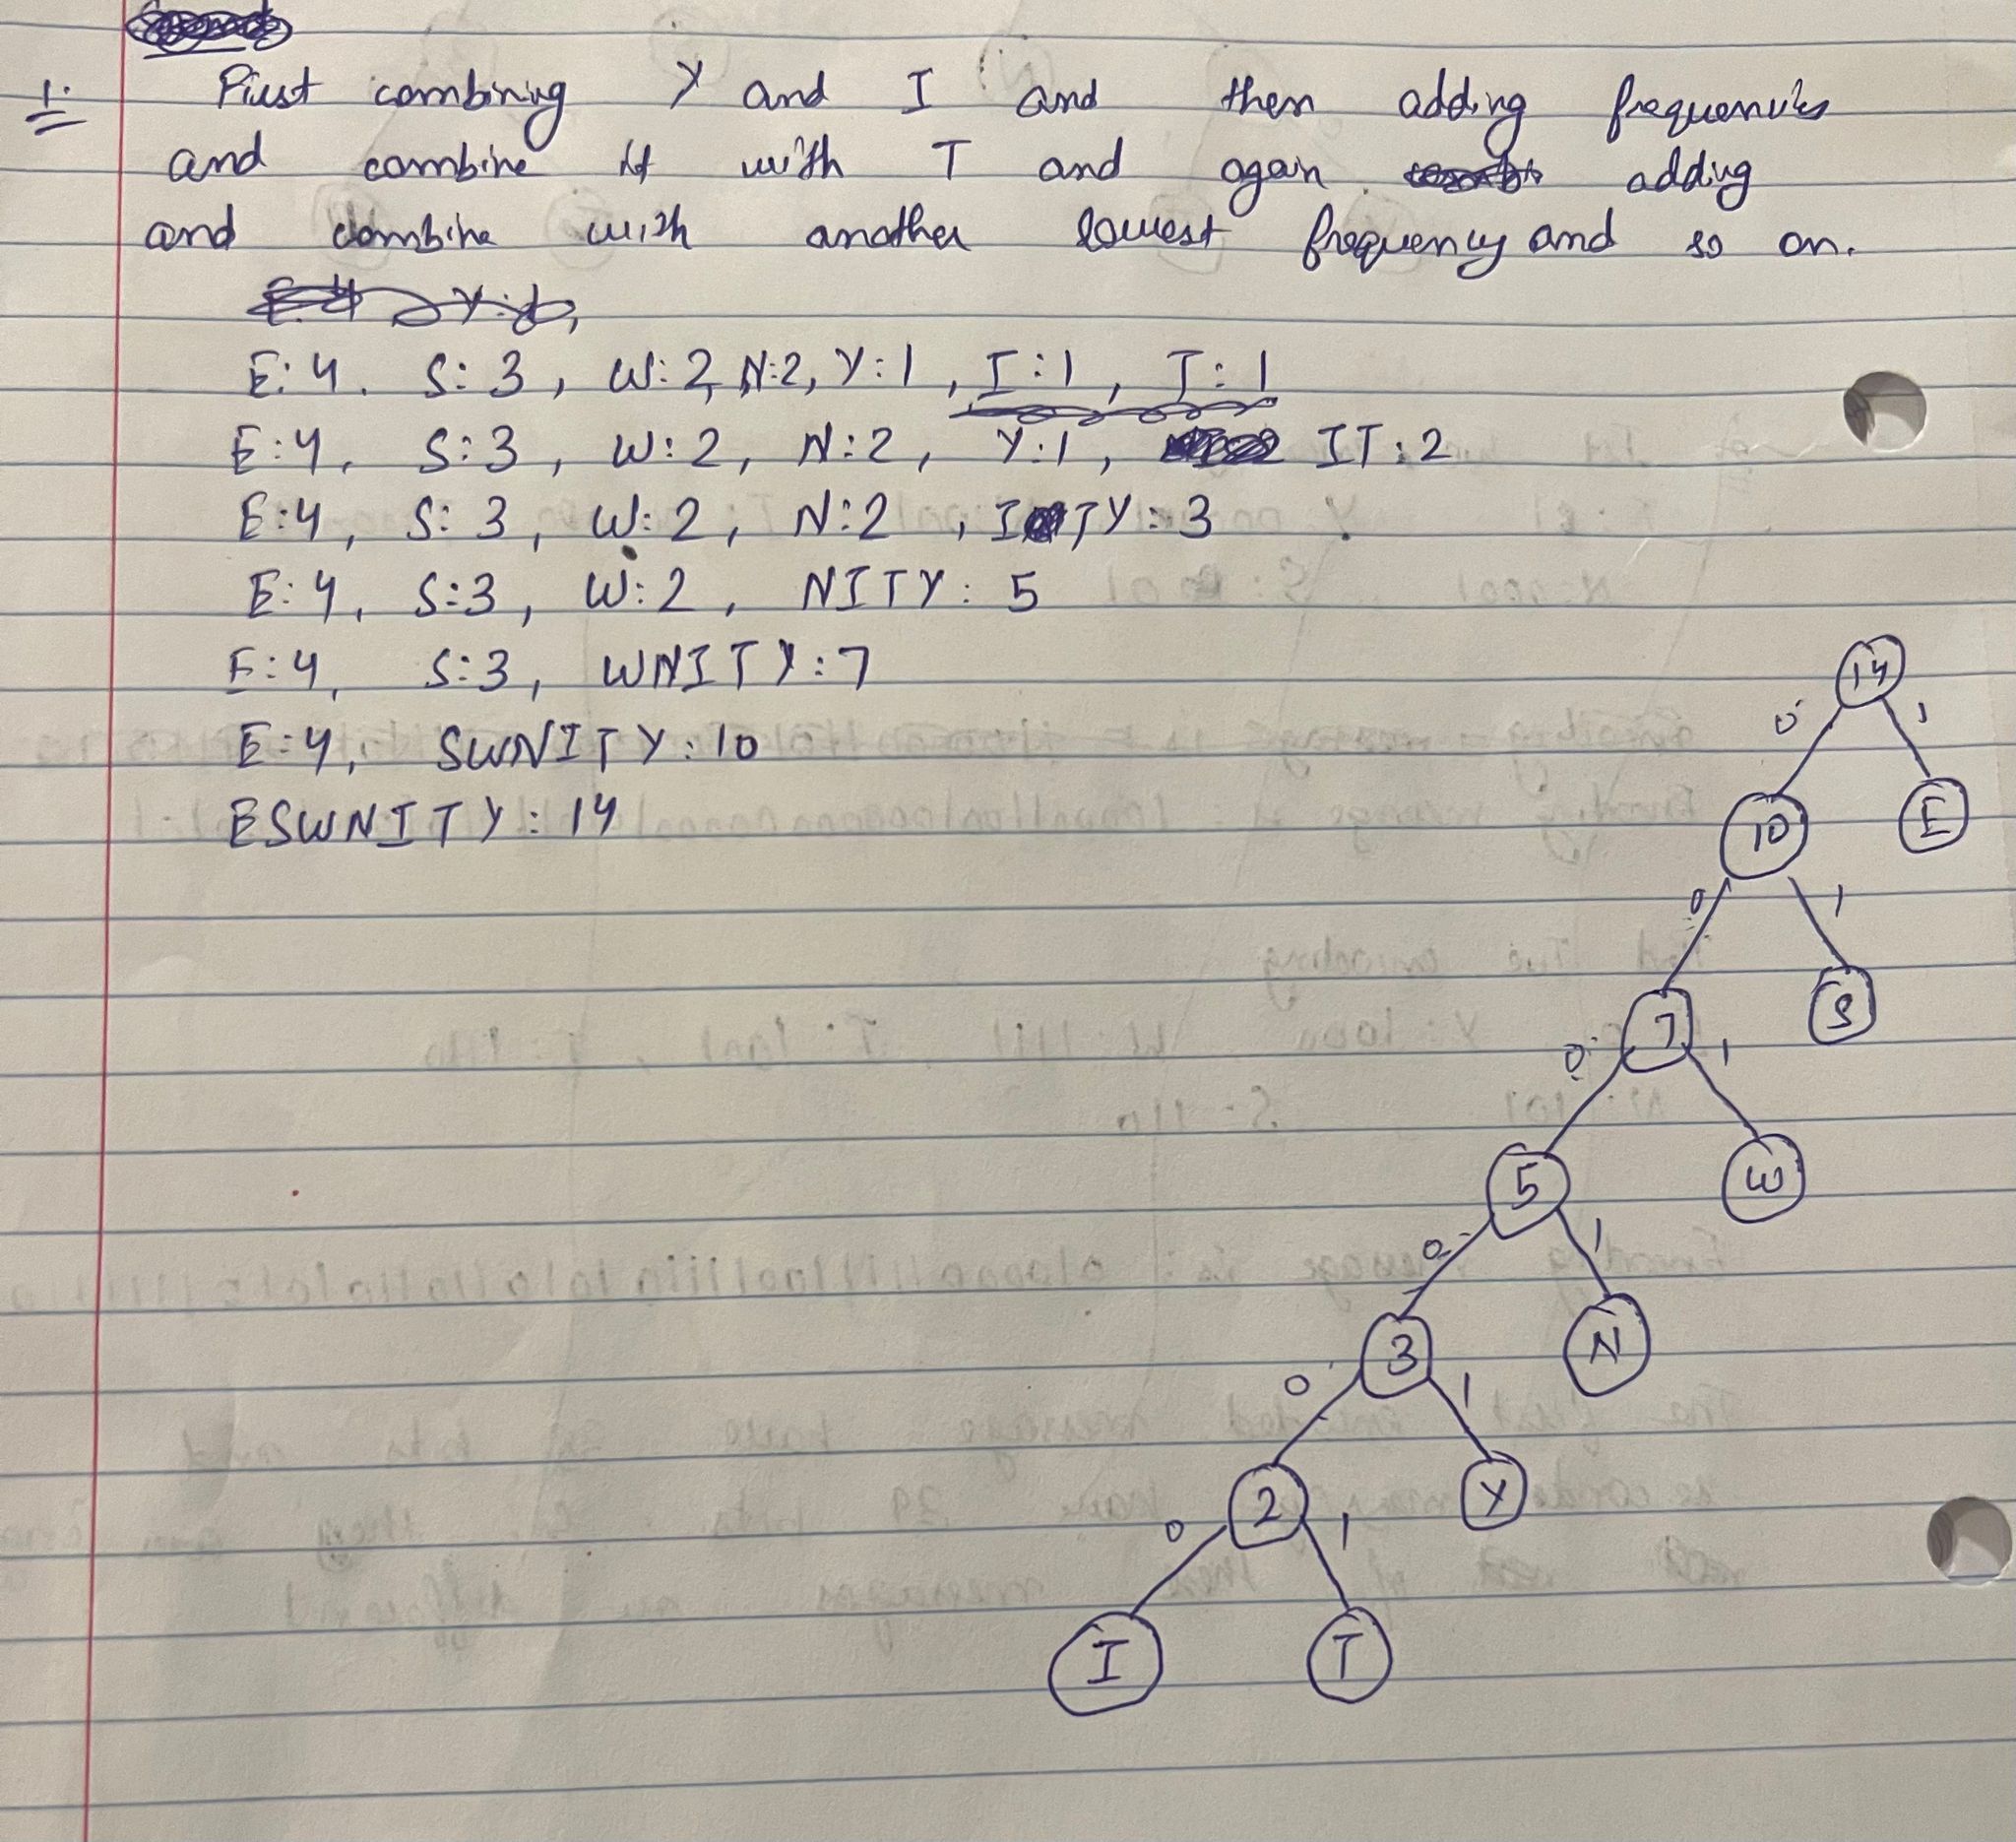 1.
First combining Y and I and then adding frequencies
and combine it with T and again adding
and combine with another lowest frequency and so on.
E:4. S:3, W:2, N:2, Y:1, I:1, T:1
E:4, S:3, W:2, N:2, Y:1, IT:2
E:4, S:3, W:2, N:2, ITY:3
E:4, S:3, W:2, NITY:5
E:4, S:3, WNITY:7
E:4, SWNITY:10
ESWNITY:14
14
0 1
10 E
0 1
7 S
0 1
5 W
0 1
3 N
0 1
2 Y
0 1
I T